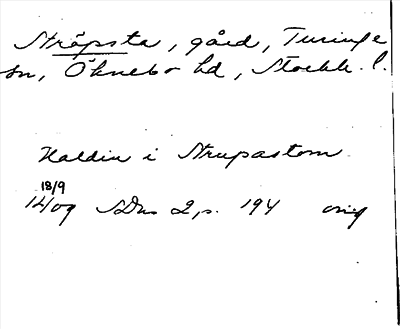 Sträpsta, gård, Turinge
sn, Öknebo hd, Stockh. l.
Haldin i Strupastom
18/9
1409 SDns 2, s. 194 orig